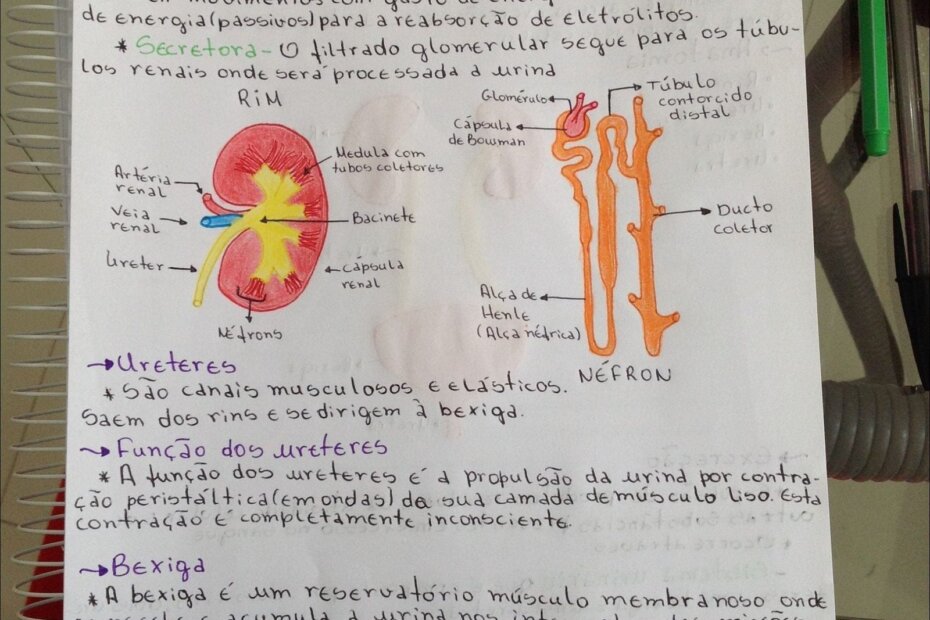 de energia (passivos) para a reabsorção de eletrólitos.
* Secretora - O filtrado glomerular segue para os túbu-
los renais onde será processada a urina
RIM
Artéria
renal
Veia
renal
Ureter
Medula com
tubos coletores
Bacinete
Cápsula
renal
Néfrons
Glomérulo
Cápsula
de Bowman
Túbulo
contorcido
distal
Ducto
coletor
Alça de
Henle
(Alça néfrica)
NÉFRON
→ Ureteres
* São canais musculosos e elásticos.
Saem dos rins e se dirigem à bexiga.
→ Função dos ureteres
* A função dos ureteres é a propulsão da urina por contra-
ção peristáltica (em ondas) da sua camada de músculo liso. Esta
contração é completamente inconsciente.
→ Bexiga
* A bexiga é um reservatório músculo membranoso onde
acumula a urina nos